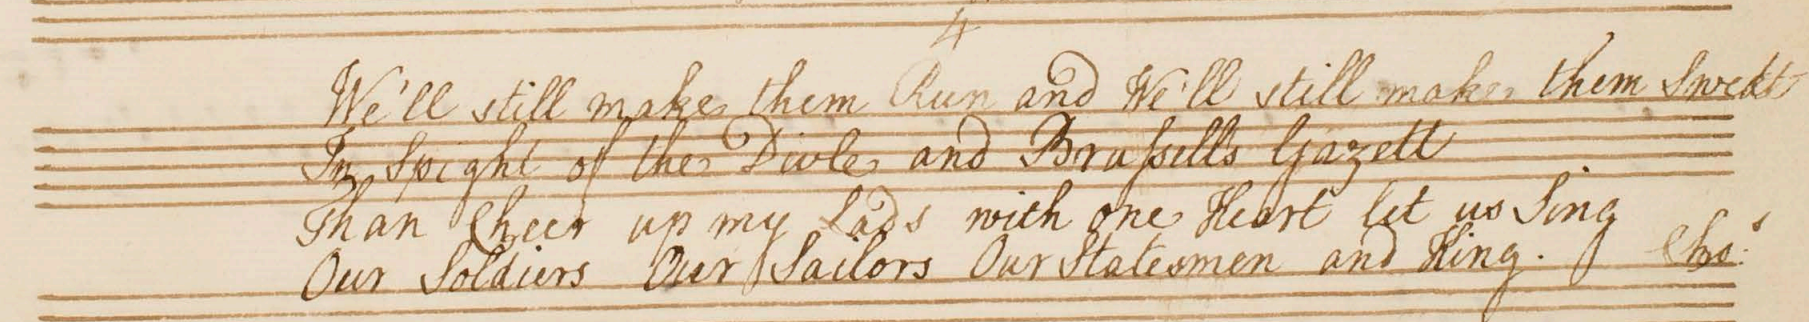 4
We'll still make them Run and We'll still make them Swett
In Spight of the Divle and Brussells Gazett
Than Cheer up my Lads with one Heart let us Sing
Our Soldiers Our Sailors Our Statesmen and King. Cho:s